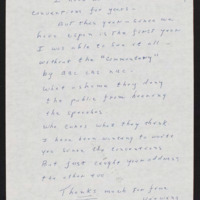 conventions for years.
But then your — since we
have cspan is the first year
I was able to see it all —
without the "commentary"
by abc cbs nbc.
What a shame they deny
the public from hearing
the speeches
Who cares what they think
I have been wanting to write
you since the conventions
But just caught your address
the other
Thanks much for